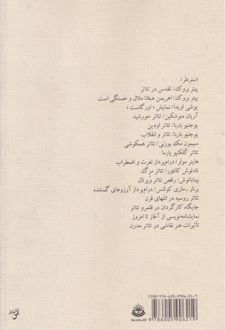 استرهلر/
پیتر بروک/ تقدس در تئاتر
پیتر بروک/ اهریمن همانا ملال و خستگی است
یوشی اویدا/ نمایش «اورگاست»
آریان منوشکین/ تئاتر خورشید
یوجنیو باربا/ تئاتر اودین
یوجنیو باربا/ و انقلاب تئاتر
سیمون مک بورنی/ تئاتر همکوشی
تئاتر کلکتیو پارما
هاینر مولر/ درام‌پرداز نفرت و اضطراب
تادئوش کانتور/ تئاتر مرگ
پینا باوش/ رقص تئاتر وپرتال
برنار ـ ماری کولتس/ درام‌پرداز آرزوهای گمشده
تئاتر روسیه در انتهای قرن
جایگاه کارگردان در قلمرو تئاتر
نمایشنامه‌نویسی از آغاز تا امروز
تأثیرات هنر نقاشی در تئاتر مدرن
9 786001 906219